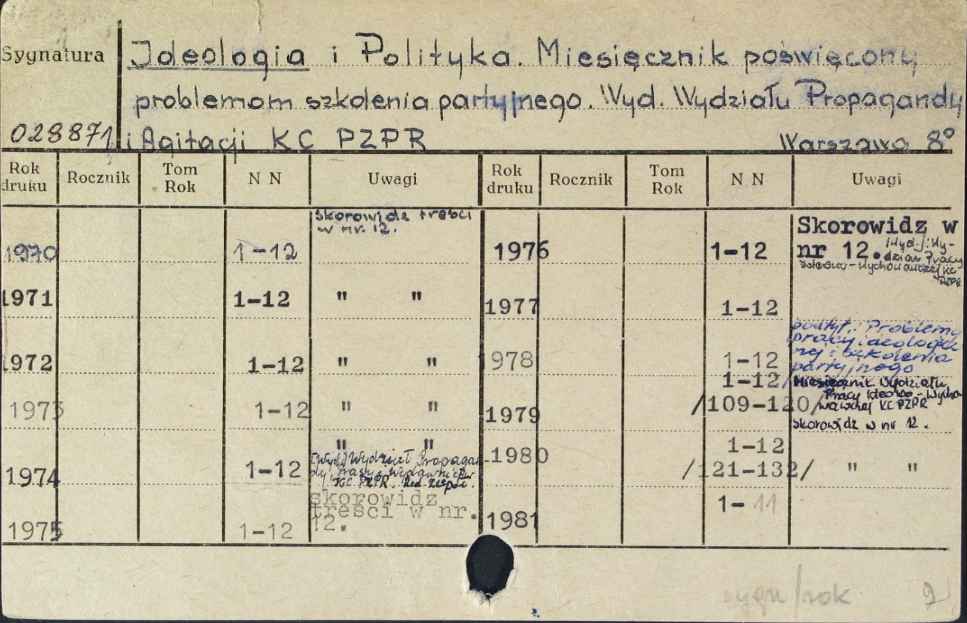 Sygnatura
Ideologia i Polityka. Miesięcznik poświęcony
problemom szkolenia partyjnego. Wyd. Wydziału Propagandy
028871 i Agitacji KC PZPR Warszawa 8°
Rok druku Rocznik Tom Rok N N Uwagi Rok druku Rocznik Tom Rok N N Uwagi
1970 1-12 skorowidz treści w nr. 12. 1976 1-12 Skorowidz w nr 12.
1971 1-12 " " 1977 1-12
1972 1-12 " " 1978 1-12 podtyt.: Problemy pracy ideologicznej i szkolenia partyjnego
1973 1-12 " " 1979 1-12 /109-120/ Miesięcznik Wydziału Pracy Ideowo-Wychowawczej KC PZPR skorowidz w nr 12.
1974 1-12 " " KC PZPR. 1980 1-12 /121-132/ " "
1975 1-12 skorowidz treści w nr. 12. 1981 1-11
sygn/rok 9